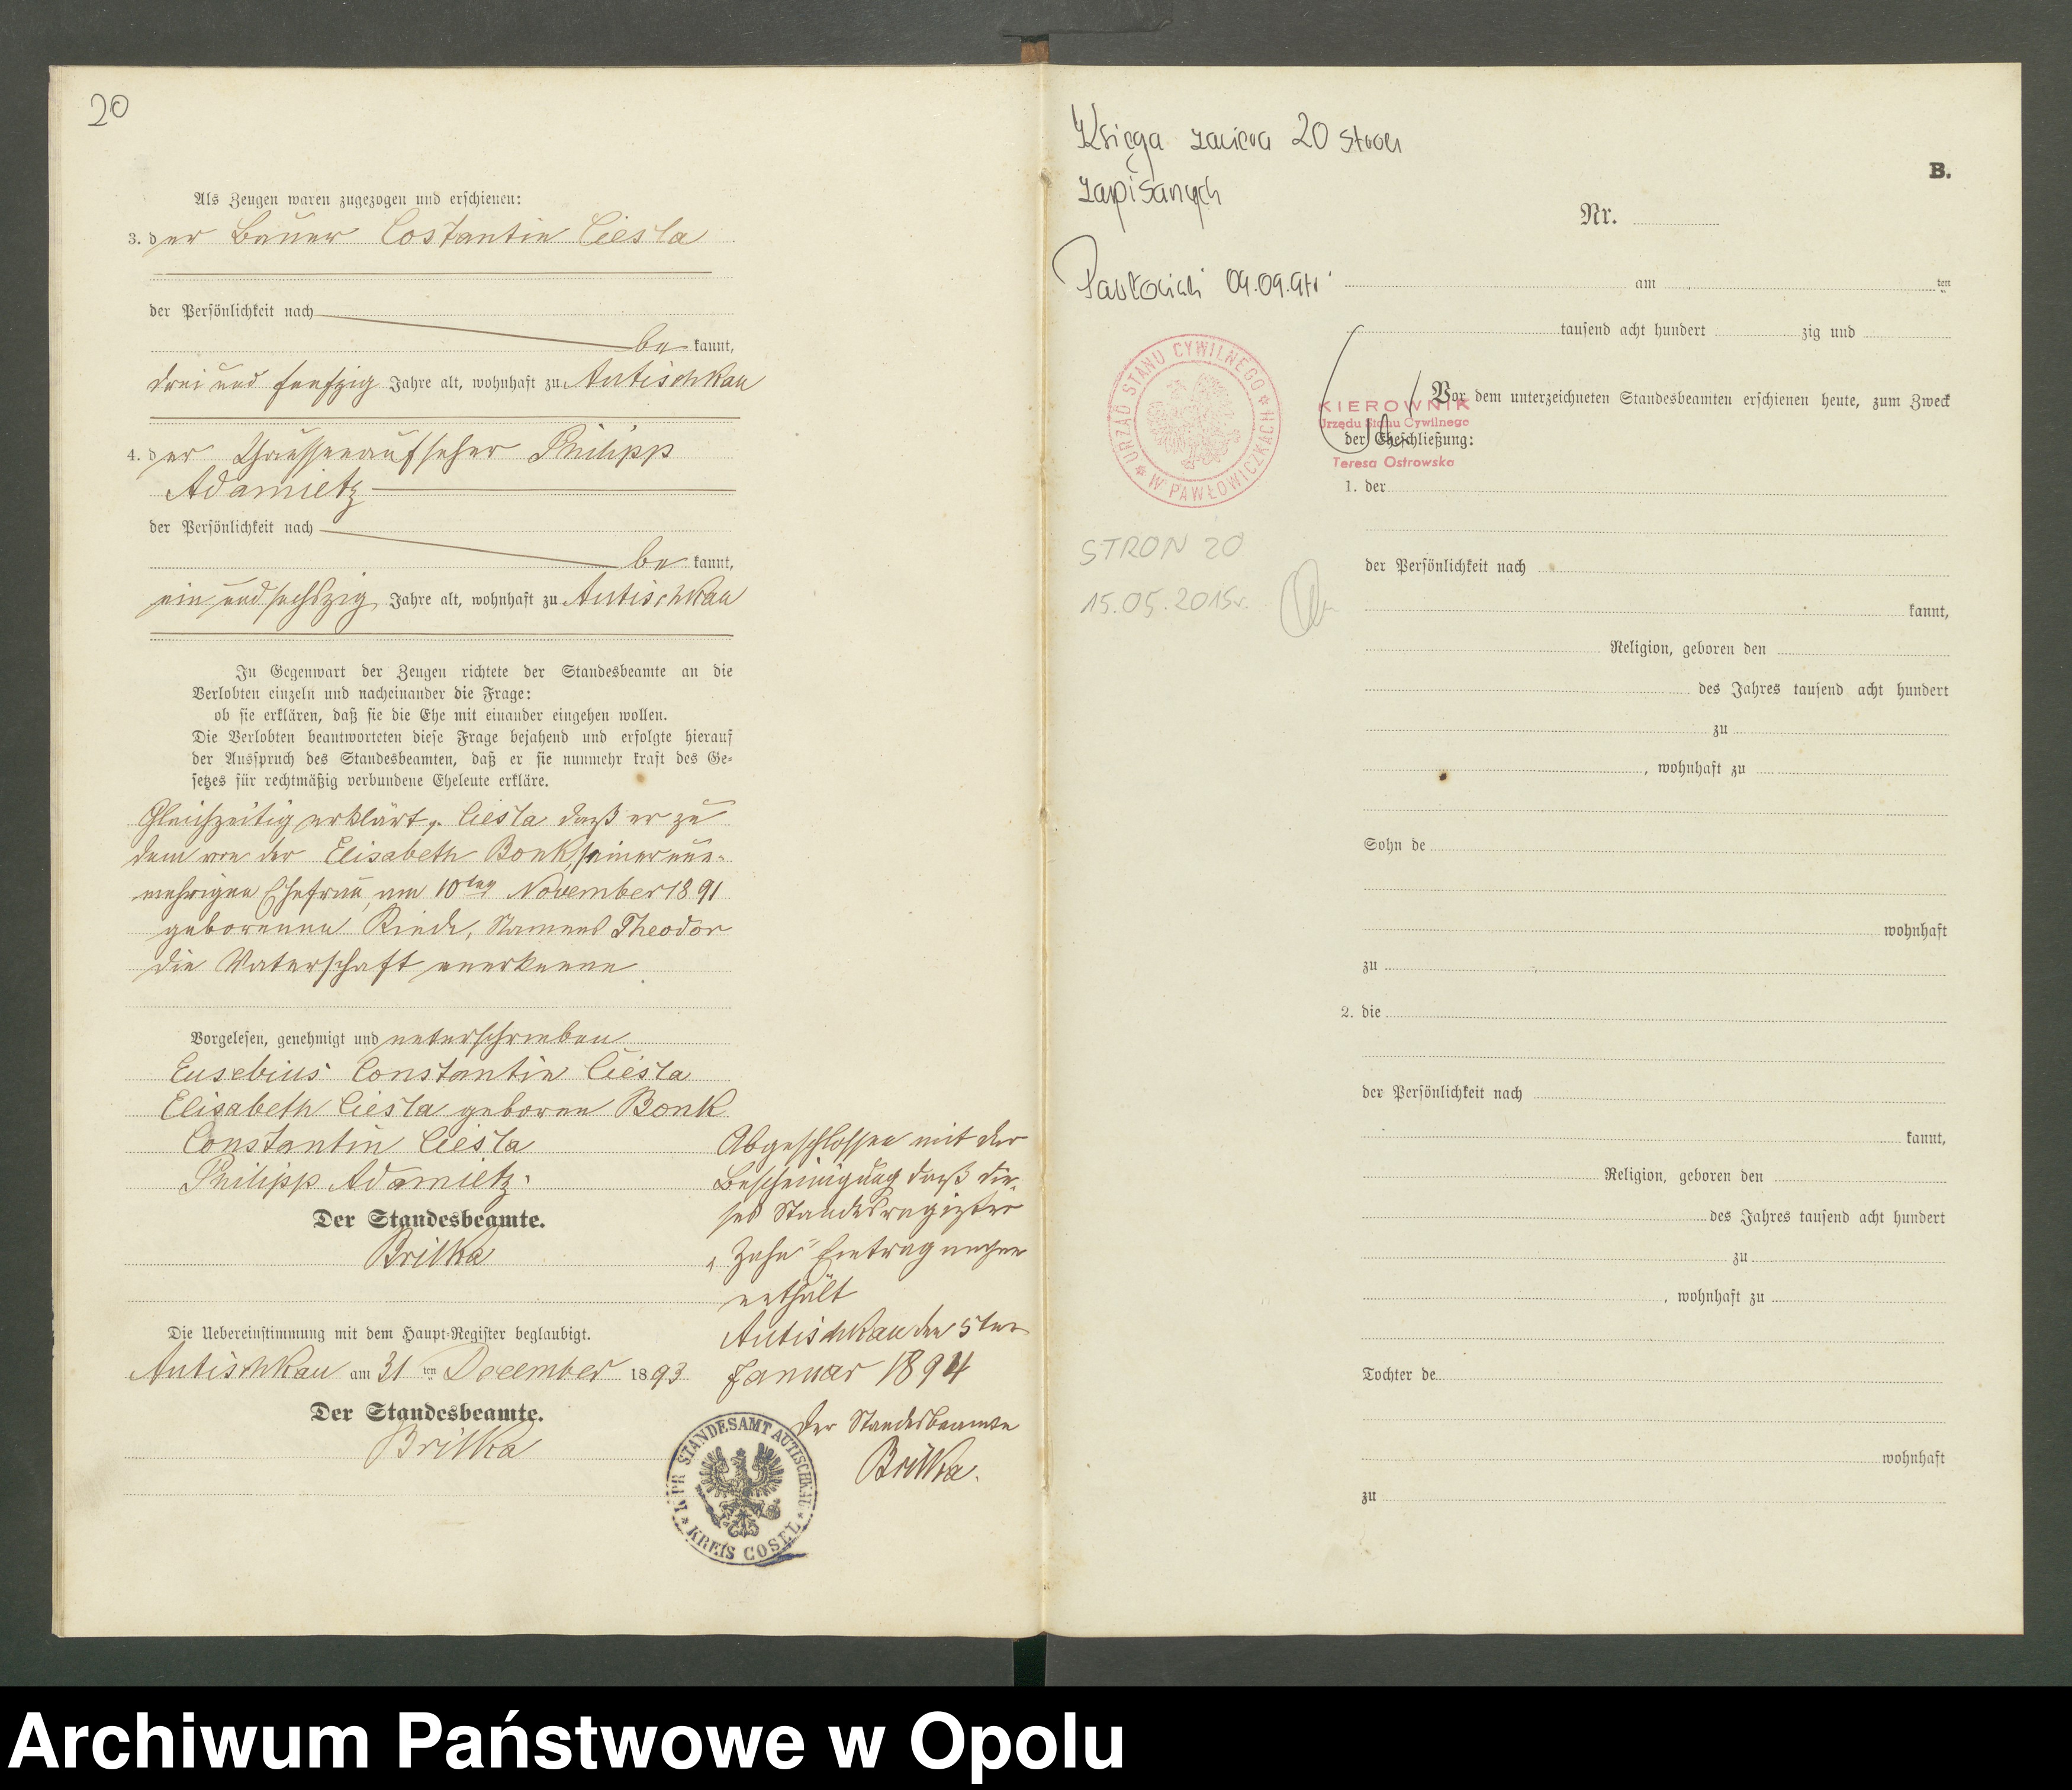 20
Als Zeugen waren zugezogen und erschienen:
3. der Bauer Costantin Ciesla
der Persönlichkeit nach
be kannt,
drei und fünfzig Jahre alt, wohnhaft zu Autischkau
4. der Chausseeaufseher Philipp
Adamietz
der Persönlichkeit nach
be kannt,
ein und sechszig Jahre alt, wohnhaft zu Autischkau
In Gegenwart der Zeugen richtete der Standesbeamte an die
Verlobten einzeln und nacheinander die Frage:
ob sie erklären, daß sie die Ehe mit einander eingehen wollen.
Die Verlobten beantworteten diese Frage bejahend und erfolgte hierauf
der Ausspruch des Standesbeamten, daß er sie nunmehr kraft des Ge-
setzes für rechtmäßig verbundene Eheleute erkläre.
Gleichzeitig erklärt, Ciesla daß er zu
dem von der Elisabeth Bonk, seiner nun-
mehrigen Ehefrau, am 10ten November 1891
geborenen Kinde, Namens Theodor
die Vaterschaft anerkenne
Vorgelesen, genehmigt und unterschrieben
Eusebius Constantin Ciesla
Elisabeth Ciesla geboren Bonk
Constantin Ciesla
Philipp Adamietz.
Der Standesbeamte.
Brilka
Die Uebereinstimmung mit dem Haupt-Register beglaubigt.
Autischkau am 31 ten December 1893
Der Standesbeamte.
Brilka
Abgeschlossen mit der
Bescheinigung daß die-
ses Standesregister
„Zehn" Eintragungen
enthält
Autischkau den 5ten
Januar 1894
Der Standesbeamte
Brilka.
K. PR. STANDESAMT AUTISCHKAU
* KREIS COSEL *
Księga zawiera 20 stron
zapisanych
09.09.
URZĄD STANU CYWILNEGO
* W PAWŁOWICZKACH *
KIEROWNIK
Urzędu Stanu Cywilnego
Teresa Ostrowska
STRON 20
15.05.2015r.
B.
Nr.
am ten
tausend acht hundert zig und
Vor dem unterzeichneten Standesbeamten erschienen heute, zum Zweck
der Eheschließung:
1. der
der Persönlichkeit nach
kannt,
Religion, geboren den
des Jahres tausend acht hundert
zu
, wohnhaft zu
Sohn de
wohnhaft
zu
2. die
der Persönlichkeit nach
kannt,
Religion, geboren den
des Jahres tausend acht hundert
zu
, wohnhaft zu
Tochter de
wohnhaft
zu
Archiwum Państwowe w Opolu